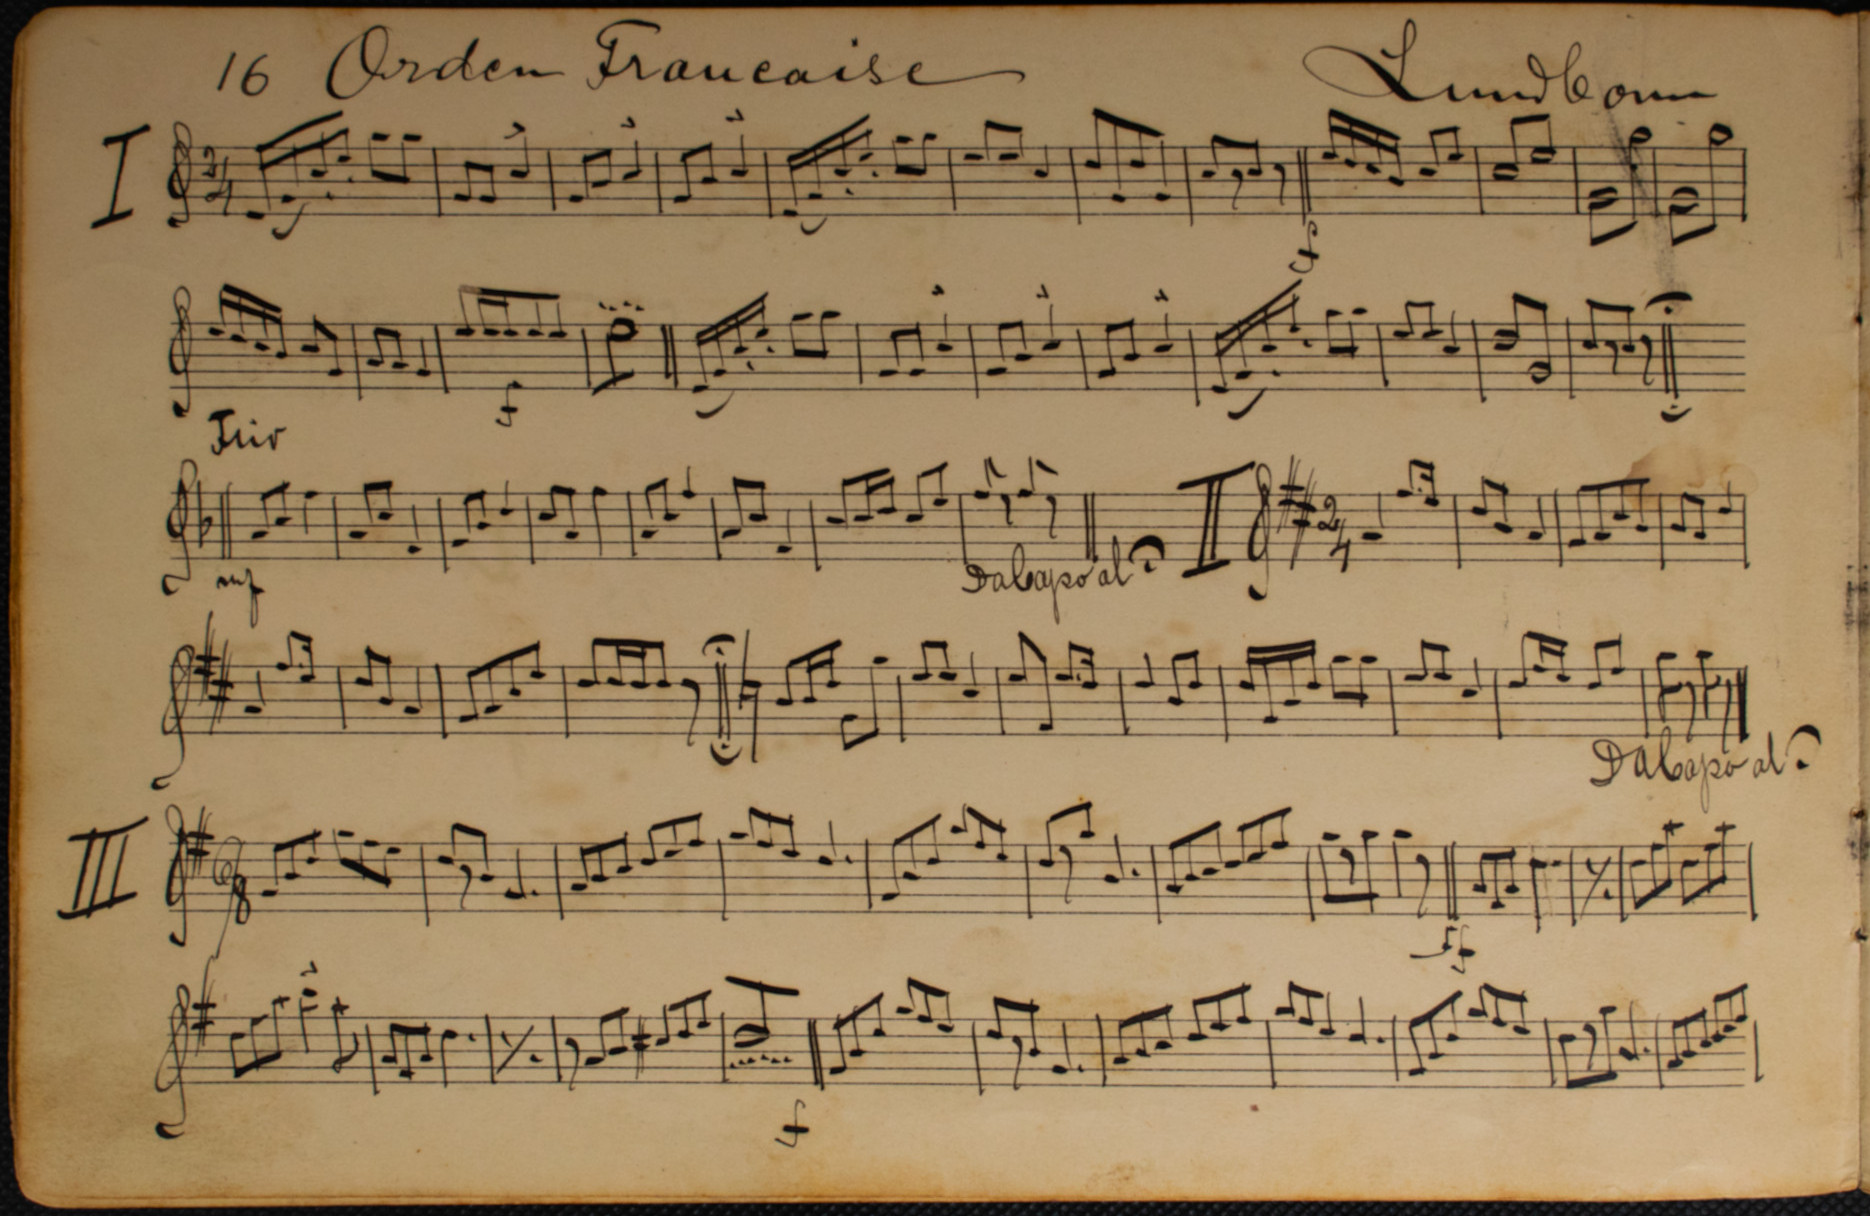 16 Orden Francaise
I 2/4
f
f
Trio
mf
Da Capo al
II 2/4
Da Capo al
III 6/8
f
f